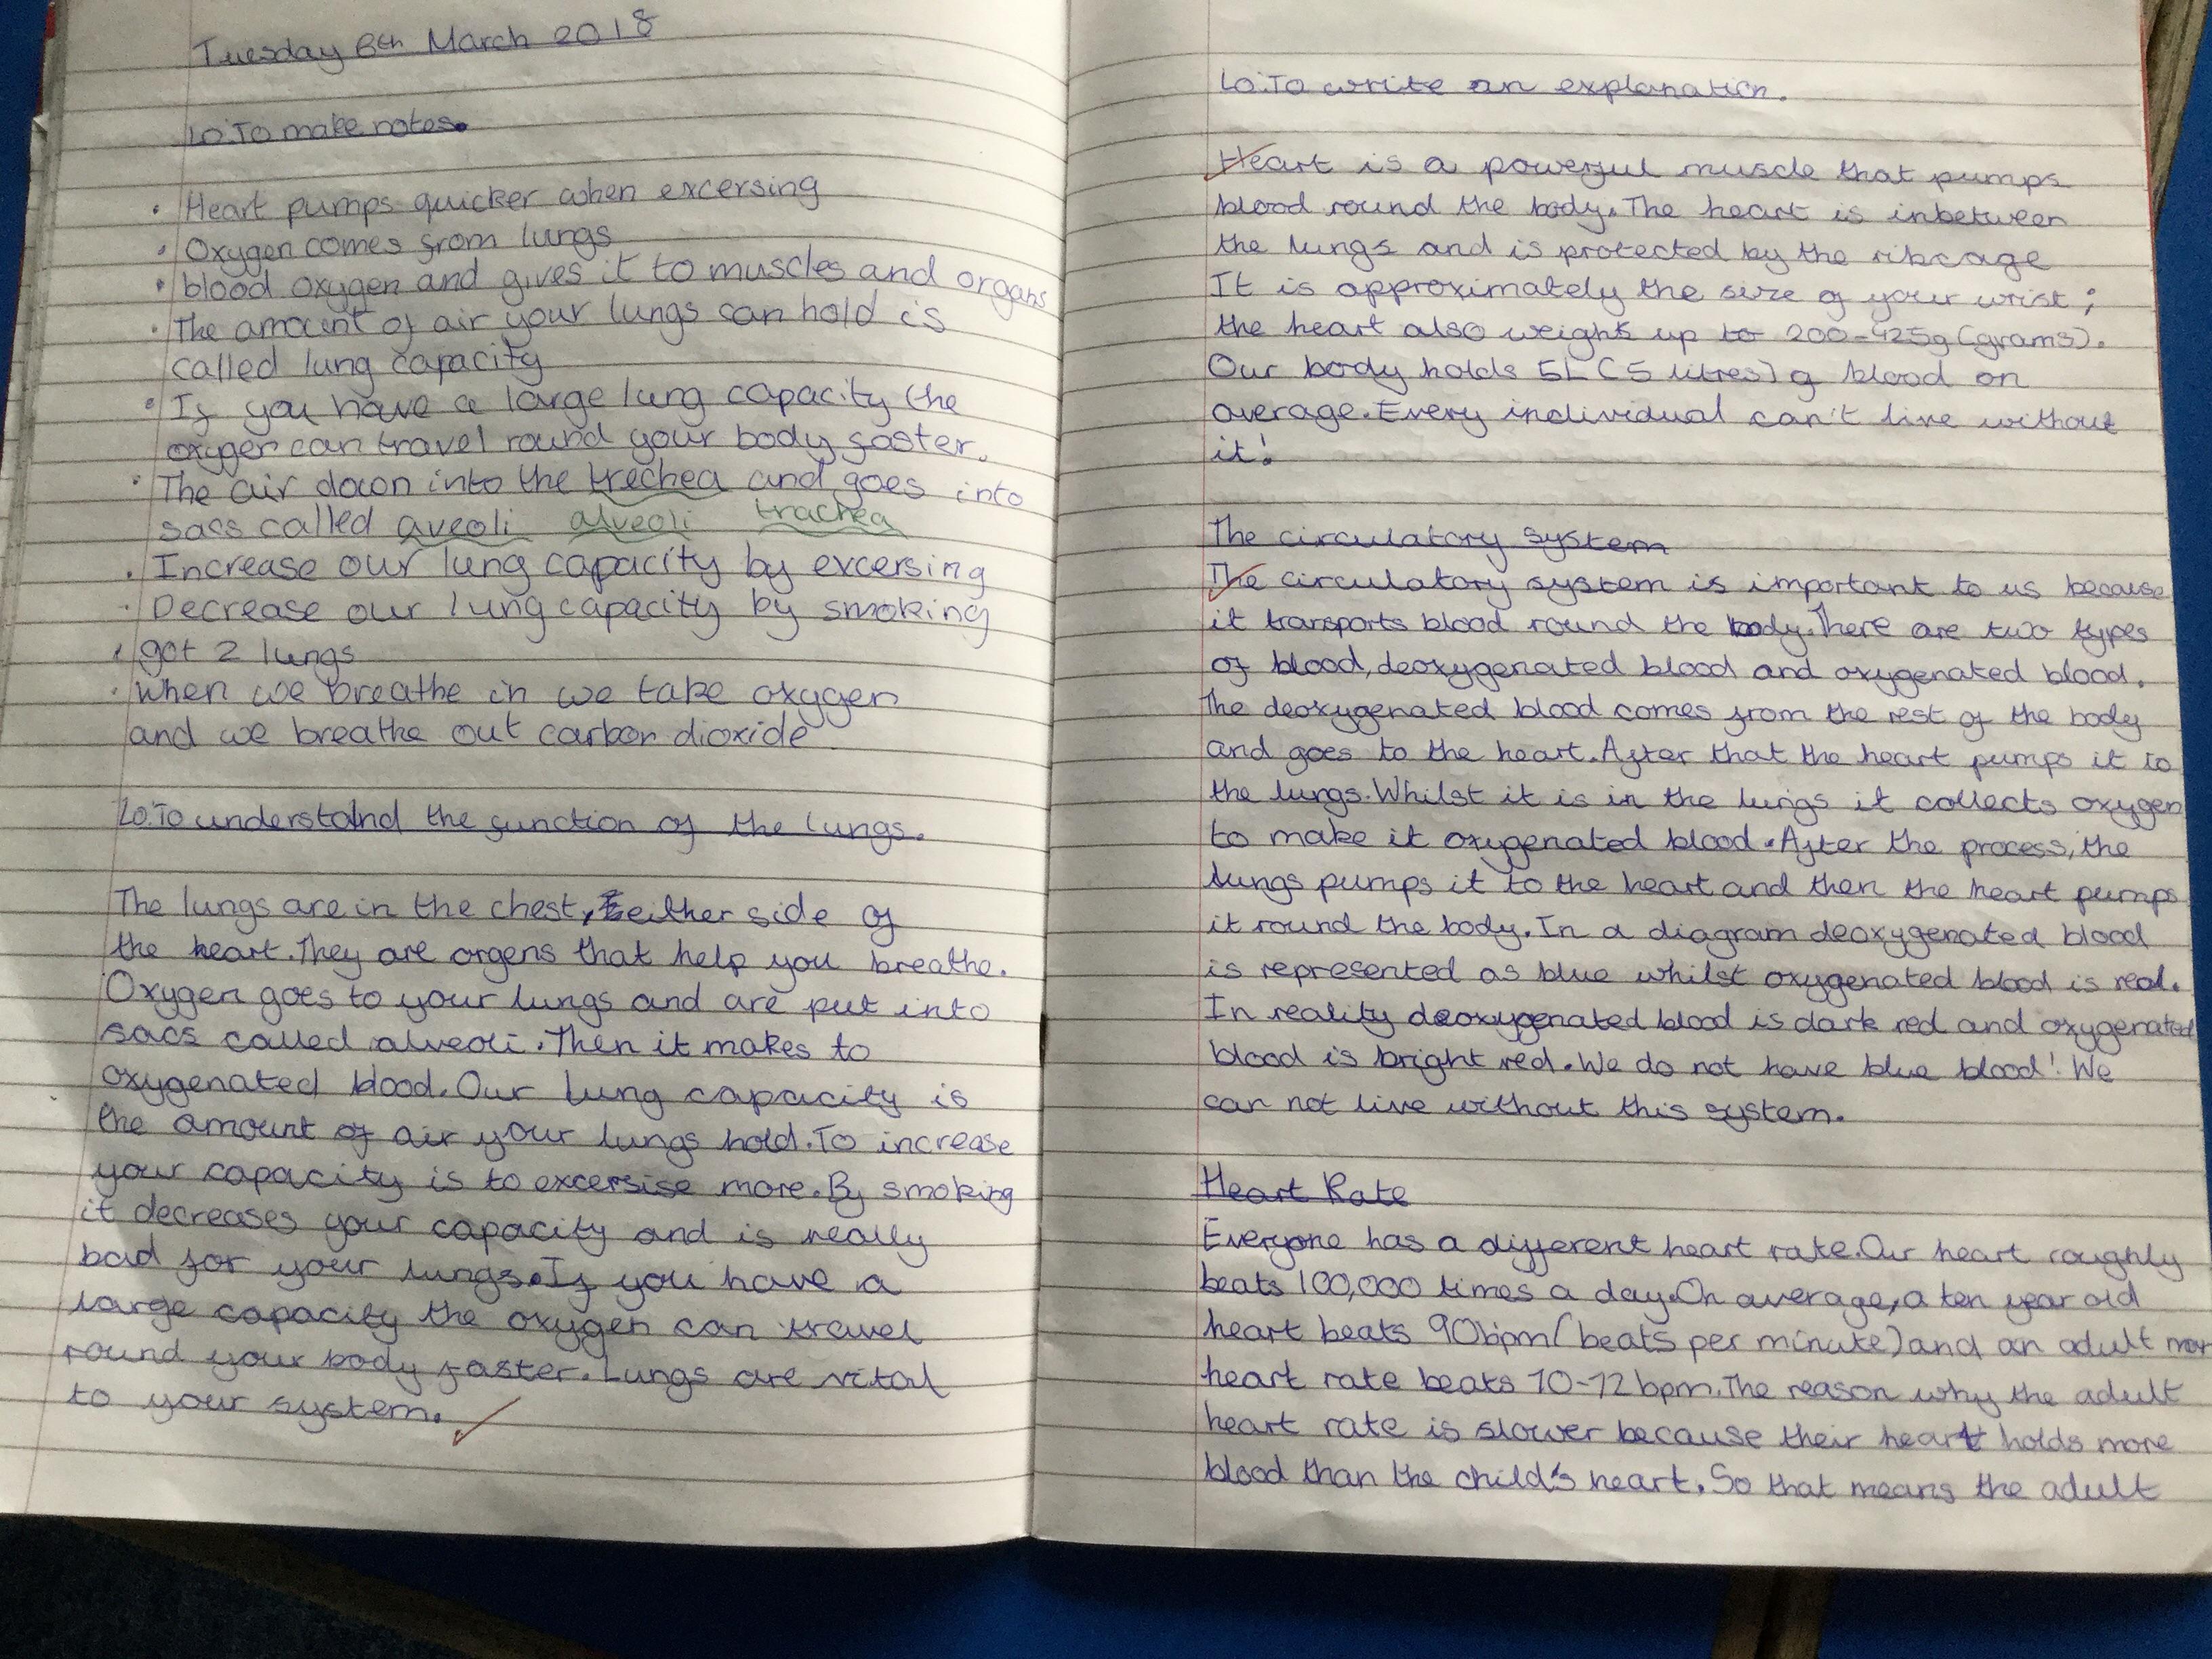 Tuesday 6th March 2018
LO:To make notes.
• Heart pumps quicker when excersing
• Oxygen comes from lungs
• blood oxygen and gives it to muscles and organs
• The amount of air your lungs can hold is
called lung capacity
• If you have a large lung capacity the
oxygen can travel round your body faster.
• The air down into the trechea and goes into
sacs called aveoli alveoli trachea
• Increase our lung capacity by excersing
• Decrease our lung capacity by smoking
• got 2 lungs
• when we breathe in we take oxygen
and we breathe out carbon dioxide
LO:To understand the function of the lungs.
The lungs are in the chest, either side of
the heart. They are orgens that help you breathe.
Oxygen goes to your lungs and are put into
sacs called alveoli. Then it makes to
oxygenated blood. Our lung capacity is
the amount of air your lungs hold. To increase
your capacity is to excersise more. By smoking
it decreases your capacity and is really
bad for your lungs. If you have a
large capacity the oxygen can travel
round your body faster. Lungs are vital
to your system.
LO:To write an explanation.
Heart is a powerful muscle that pumps
blood round the body. The heart is inbetween
the lungs and is protected by the ribcage
It is approximately the size of your wrist;
the heart also weighs up to 200-425g (grams).
Our body holds 5L (5 litres) of blood on
average. Every individual can't live without
it!
The circulatory system
The circulatory system is important to us because
it transports blood round the body. There are two types
of blood, deoxygenated blood and oxygenated blood.
The deoxygenated blood comes from the rest of the body
and goes to the heart. After that the heart pumps it to
the lungs. Whilst it is in the lungs it collects oxygen
to make it oxygenated blood. After the process, the
lungs pumps it to the heart and then the heart pumps
it round the body. In a diagram deoxygenated blood
is represented as blue whilst oxygenated blood is red.
In reality deoxygenated blood is dark red and oxygenated
blood is bright red. We do not have blue blood! We
can not live without this system.
Heart Rate
Everyone has a different heart rate. Our heart roughly
beats 100,000 times a day. On average, a ten year old
heart beats 90bpm (beats per minute) and an adult
heart rate beats 70-72 bpm. The reason why the adult
heart rate is slower because their heart holds more
blood than the child's heart. So that means the adult